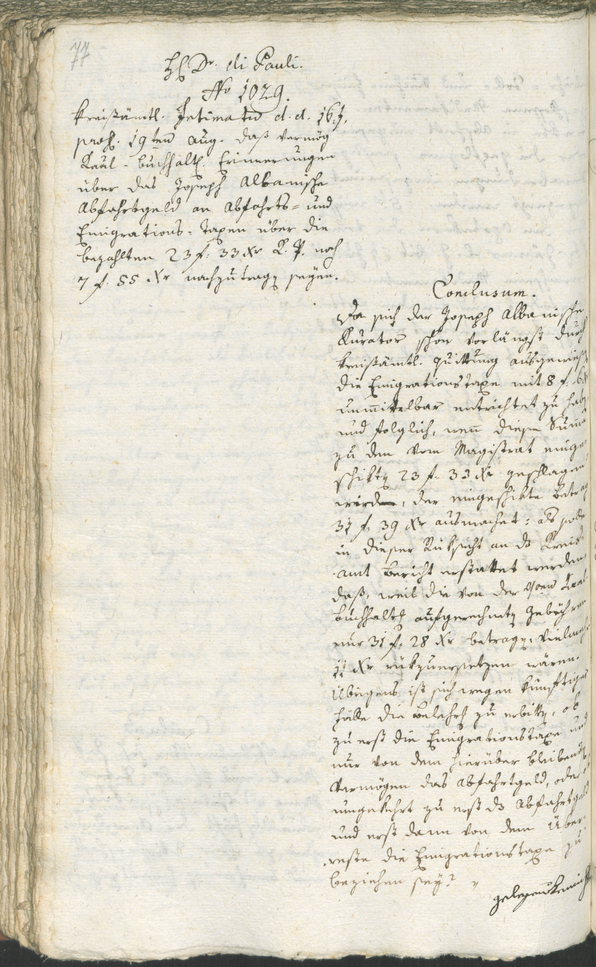 77
H. Dr. di Pauli.
No 1029.
Kreisämtl. Intimatio d. d. 16t,
præs. 19ten Aug. daß vermög
Kaal-Buchhalt. Erinnerungen
über das Joseph Albanische
Abfahrtgeld an Abfahrts- und
Emigrations-Taxen über die
bezahlten 23 f. 33 xr R. W. noch
7 f. 55 xr nachzutragen seyen.
Conclusum.
Da sich der Joseph Albanische
Kurator schon vorlängst durch
Kreisämtl. Quittung ausgewiesen
die Emigrationstaxe mit 8 f. 6 xr
unmittelbar entrichtet zu haben
und folglich, wenn diese Summe
zu den vom Magistrat einge-
schikten 23 f. 33 xr geschlagen
werden, der eingeschikte Betrag
31 f. 39 xr ausmachet: als solle
in dieser Rüksicht an das Kreis-
amt Bericht erstattet werden,
daß, weil die von der
Buchhaltey aufgerechneten Gebühren
nur 31 f. 28 xr betragen, vielmehr
11 xr rükzuersetzen wären.
Übrigens ist sich wegen künftiger
Fälle die Belehrung zu erbitten, ob
zu erst die Emigrationstaxe und
nur von dem hierüber bleibenden
Vermögen das Abfahrtgeld, oder
umgekehrt zu erst das Abfahrtgeld
und erst dann von dem Über-
reste die Emigrationstaxe zu
beziehen sey?